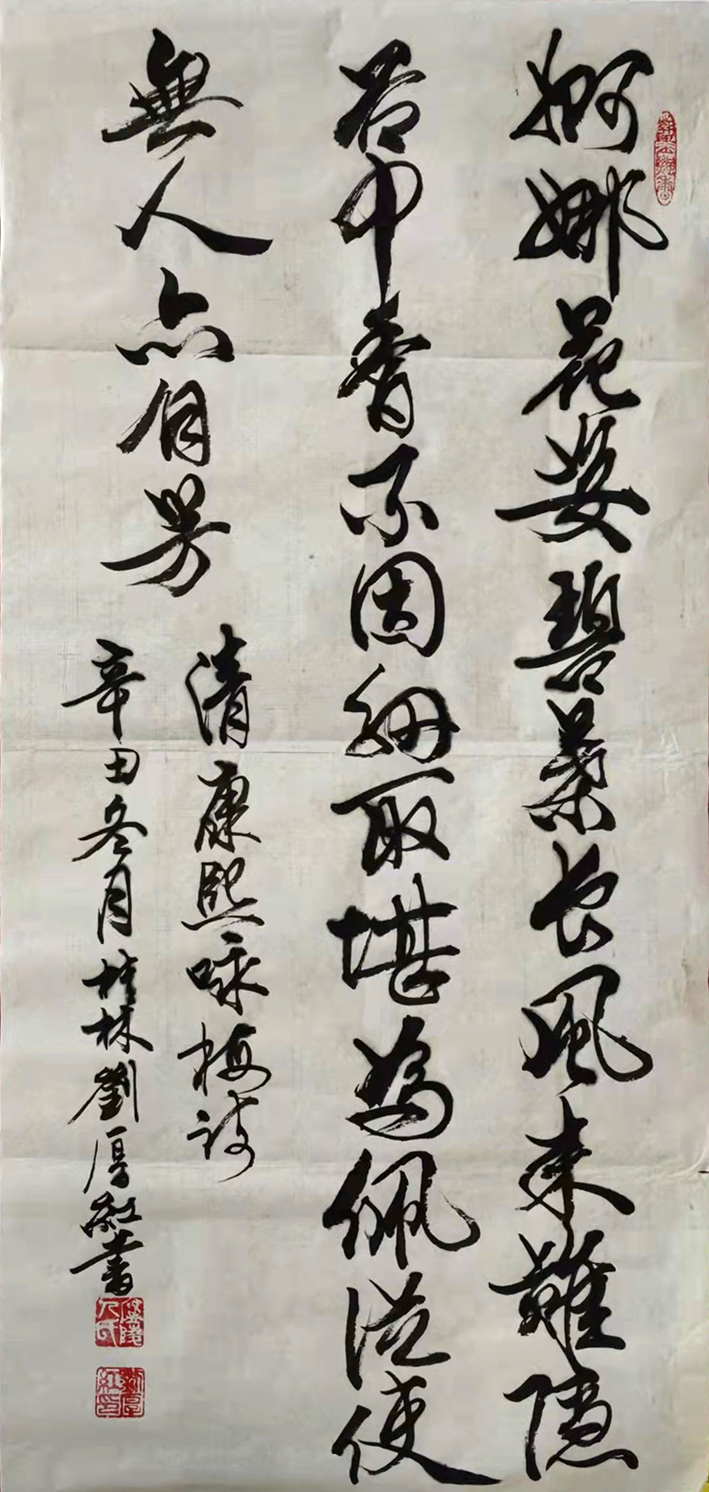 婀娜花姿碧葉長風来難隱
谷中香不因紉取堪為佩從使
無人亦自芳
清康熙咏梅詩
辛丑冬月桂林劉厚紅書
劉厚紅印